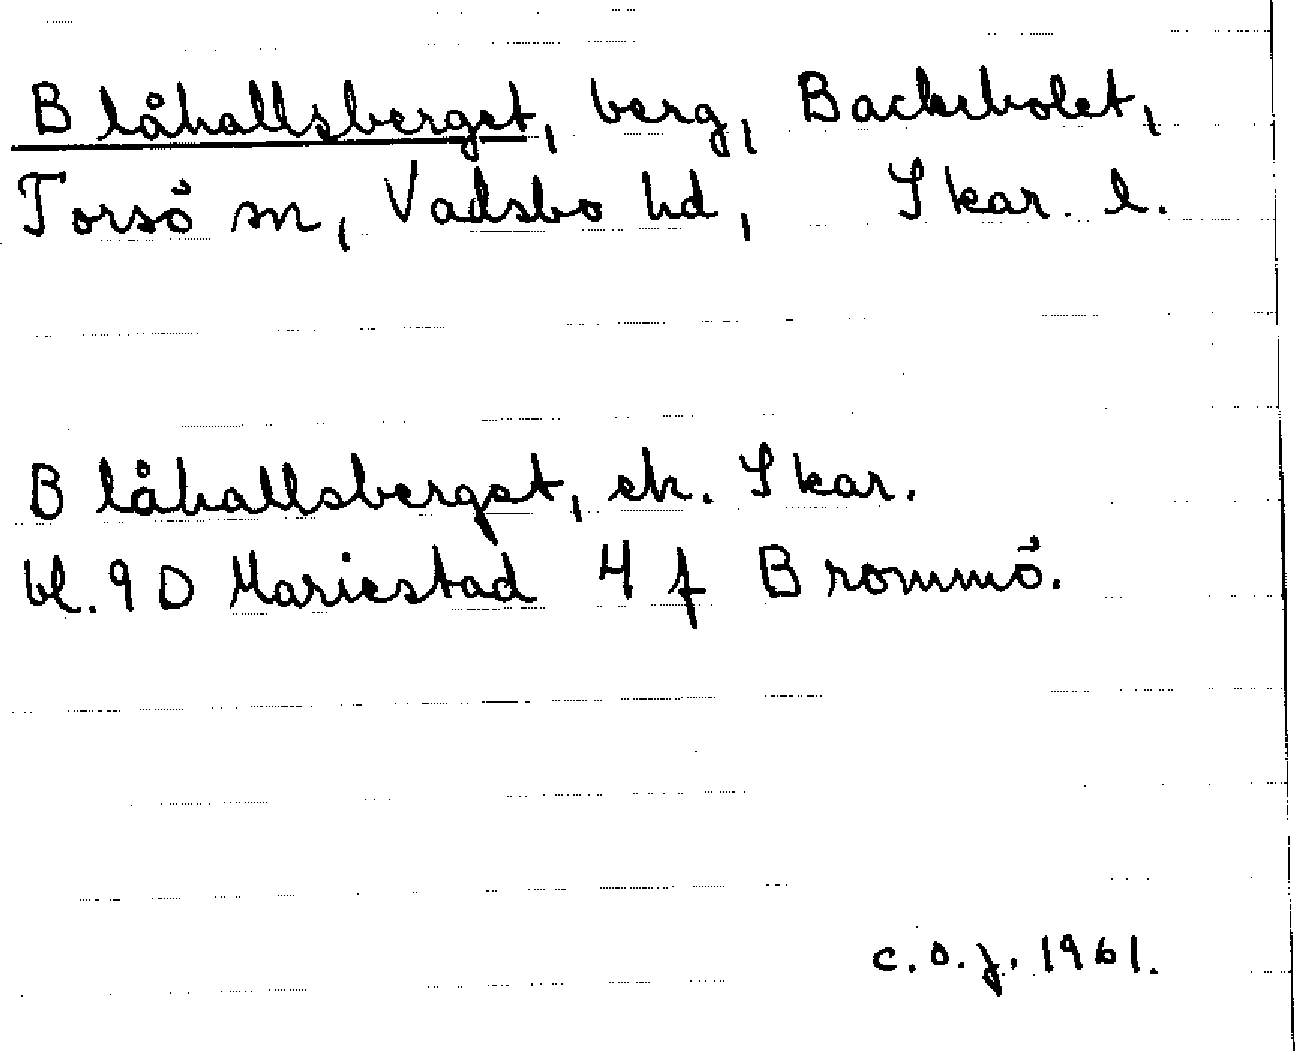 Blåhallsberget, berg, Backebolet,
Torsö sn, Vadsbo hd, Skar. l.
Blåhallsberget, ek. Skar.
bl. 9D Mariestad 4 f Brommö.
c.o.j. 1961.